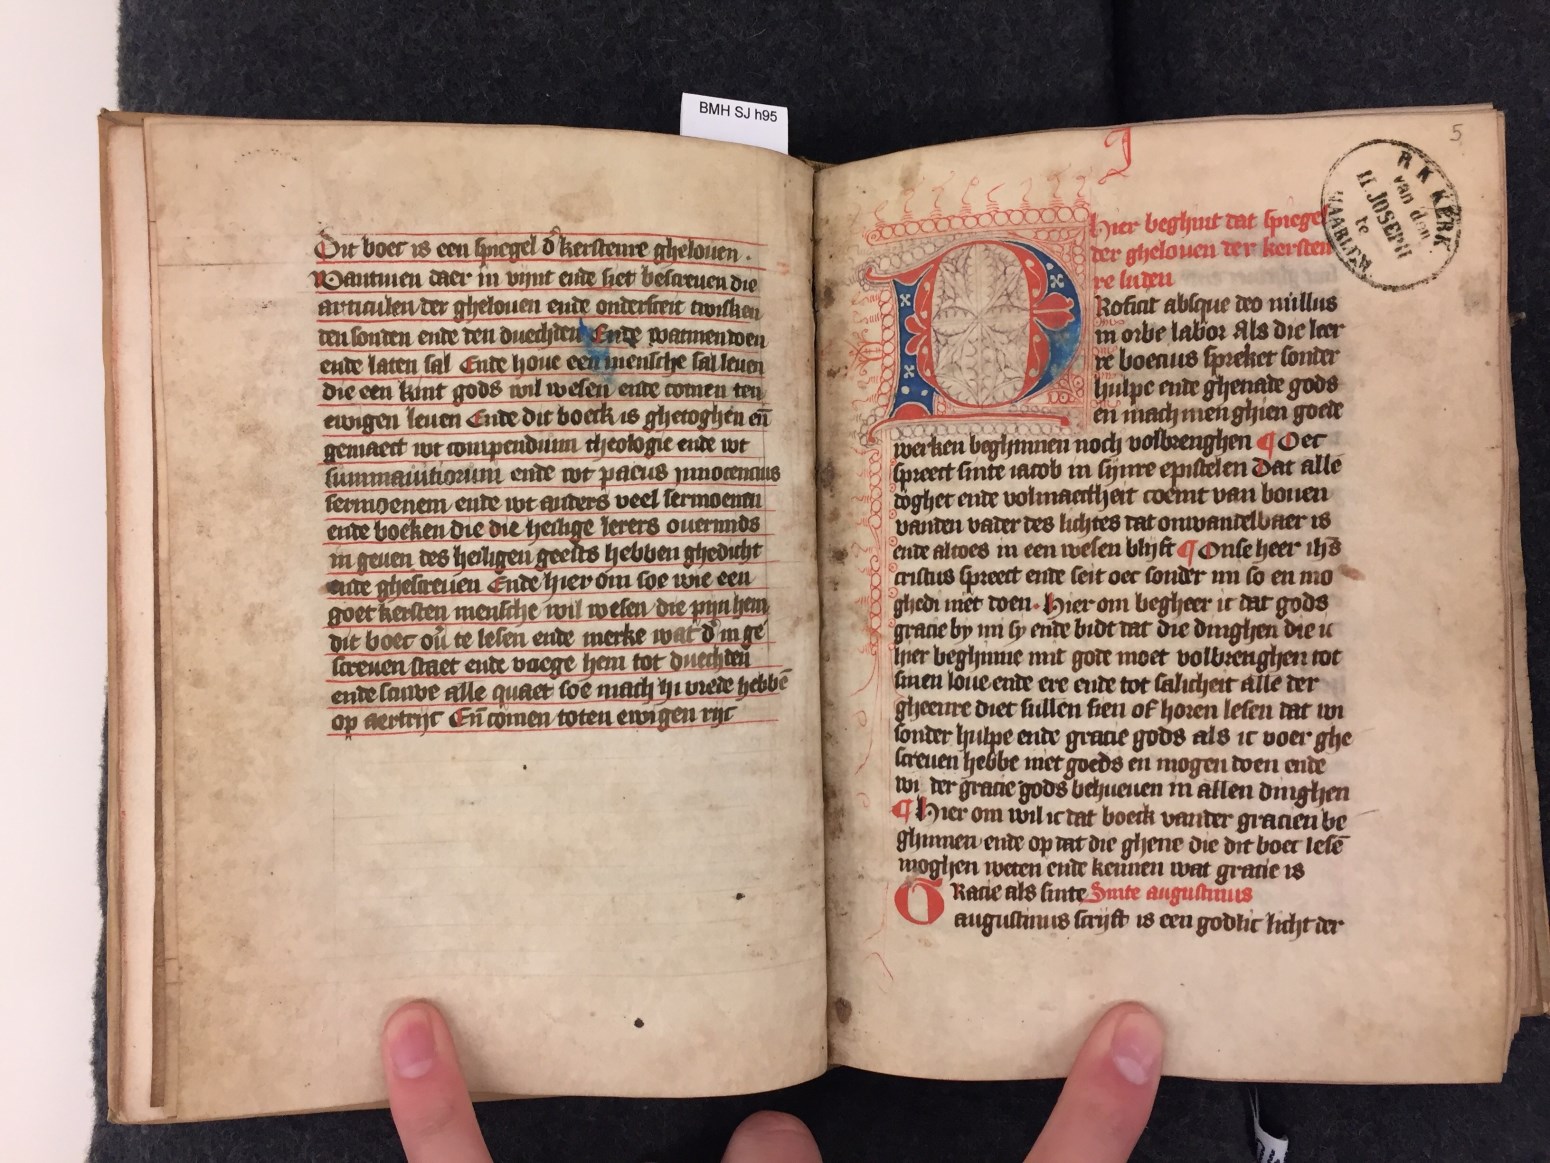 BMH SJ h95
Dit boec is een spiegel d' kerstenre ghelouen .
Wantmen daer in vijnt ende siet bescreuen die
articulen der ghelouen ende ondersceit twisken
den sonden ende den duechden Ende watmen doen
ende laten sal Ende houe een mensche sal leuen
die een kint gods wil wesen ende comen ten
ewigen leuen Ende dit boeck is ghetoghen en̄
gemaect wt compendium theologie ende wt
summauitiorum ende wt pacus Innocencius
sermoenem ende wt anders veel sermoenen
ende boeken die die heilige lerers ouermids
in geuen des heiligen geests hebben ghedicht
ende ghescreuen Ende hier om soe wie een
goet kersten mensche wil wesen die pijn hem
dit boec ou' te lesen ende merke wat d' in ge
screuen staet ende voege hem tot duechden
ende scuwe alle quaet soe mach hi vrede hebbē
op aertrijc En̄ comen toten ewigen rijc
5
R K KERK
van den
H. JOSEPH
te
HAARLEM
hier beghint dat spiegel
der ghelouen der kersten
re luden
PRoficit absque deo nullus
in orbe labor Als die leer
re boecius spreket sonder
hulpe ende ghenade gods
en mach men ghien goede
werken beghinnen noch volbrenghen ¶ Oec
spreect sinte iacob in sijnre epistelen Dat alle
doghet ende volmaectheit coemt van bouen
vanden vader des lichtes dat onwandelbaer is
ende altoes in een wesen blijft ¶ Onse heer ihs
cristus spreect ende seit oec sonder mi so en mo
ghedi niet doen . Hier om begheer ic dat gods
gracie by mi sy ende bidt dat die dinghen die ic
hier beghinne mit gode moet volbrenghen tot
sinen loue ende ere ende tot salicheit alle der
gheenre diet sullen sien of horen lesen dat wi
sonder hulpe ende gracie gods als ic voer ghe
screuen hebbe niet goeds en mogen doen ende
wi der gracie gods behueuen in allen dinghen
¶ Hier om wil ic dat boeck vander gracien be
ghinnen ende op dat die ghene die dit boec lesē
moghen weten ende kennen wat gracie is
GRacie als sinte Sinte augustinus
augustinus scrijft is een godlic licht der